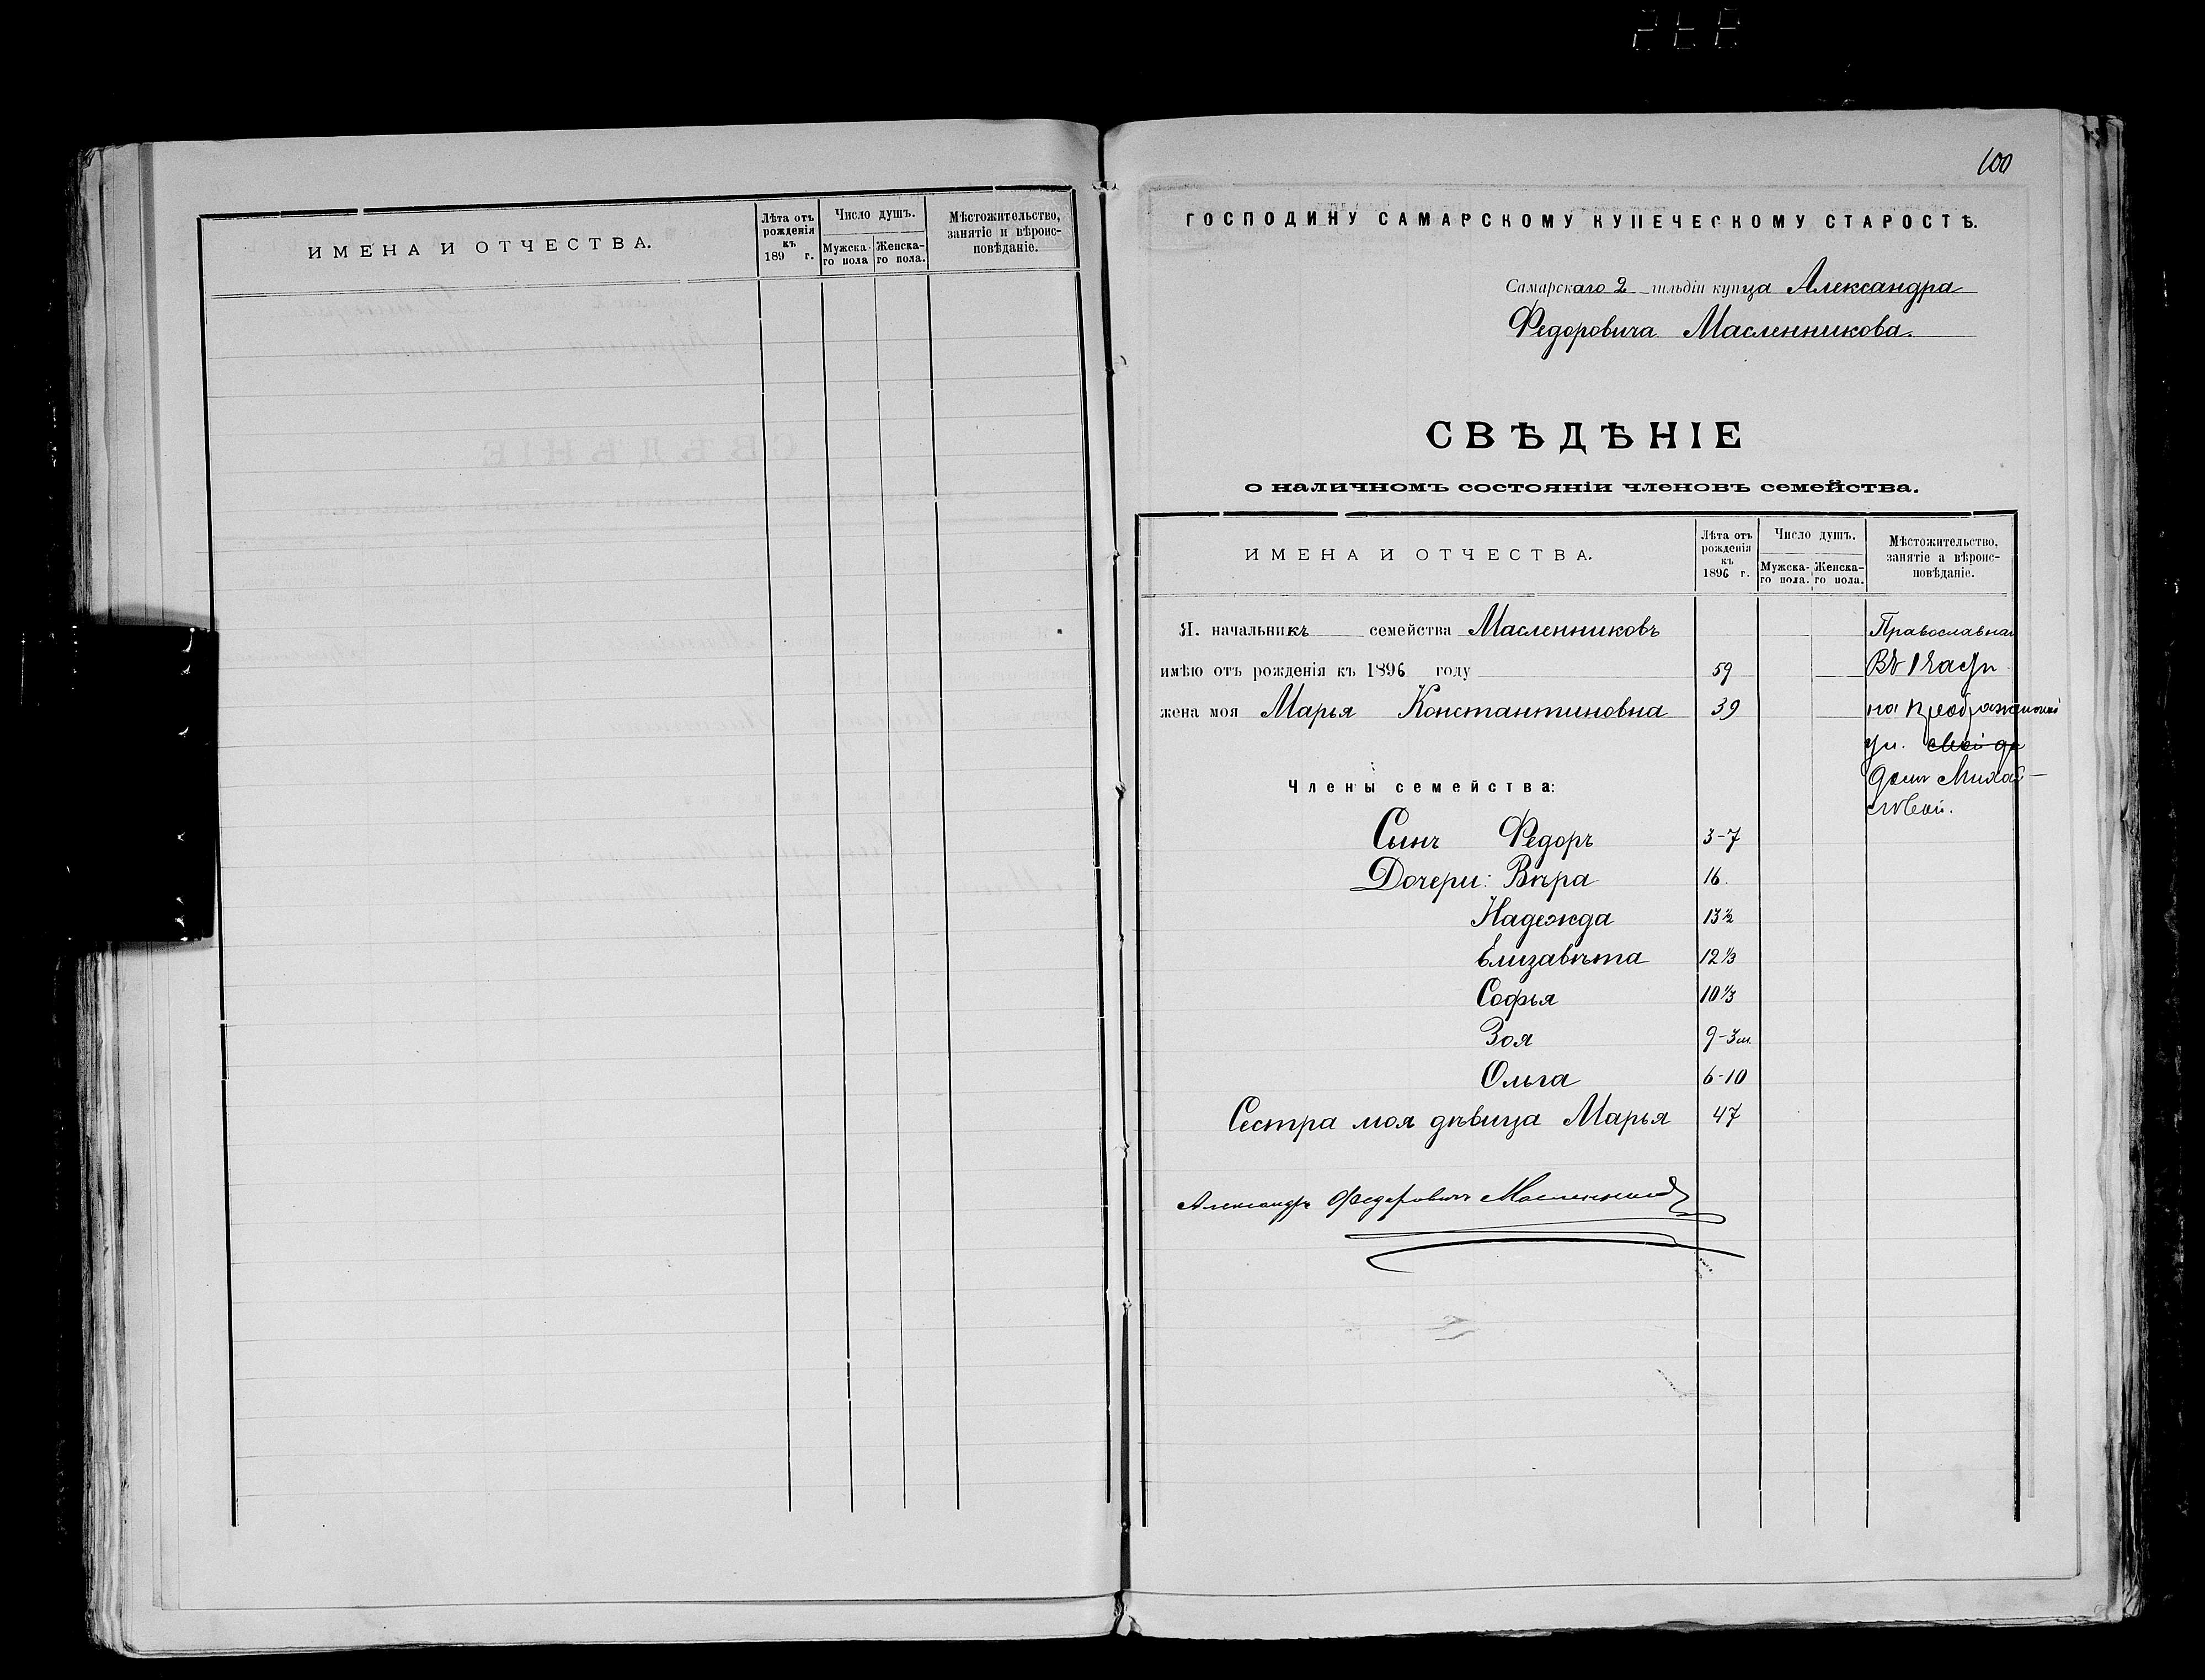 ИМЕНА И ОТЧЕСТВА.
Лѣта отъ рожденія къ 189 г.
Число душъ.
Мужска-го пола
Женска-го пола.
Мѣстожительство, занятіе и вѣроис-повѣданіе.
100
ГОСПОДИНУ САМАРСКОМУ КУПЕЧЕСКОМУ СТАРОСТѢ.
Самарскаго 2 гильдіи купца Александра
Федоровича Масленникова.
СВѢДѢНІЕ
о наличномъ состояніи членовъ семейства.
ИМЕНА И ОТЧЕСТВА.
Лѣта отъ рожденія къ 1896 г.
Число душъ.
Мужска-го пола.
Женска-го пола.
Мѣстожительство, занятіе а вѣроис-повѣданіе.
Я. начальникъ семейства Масленниковъ Православная
имѣю отъ рожденія къ 1896 году 59 Въ 1 части
жена моя Марья Константиновна 39 на
ул.
Члены семейства: домъ
Сынъ Федоръ 3-7
Дочери: Вѣра 16.
Надежда 13 ½
Елизавѣта 12 ⅓
Софья 10 ⅓
Зоя 9-3м.
Ольга 6-10
Сестра моя дѣвица Марья 47
Александръ Федоровичъ Масленников